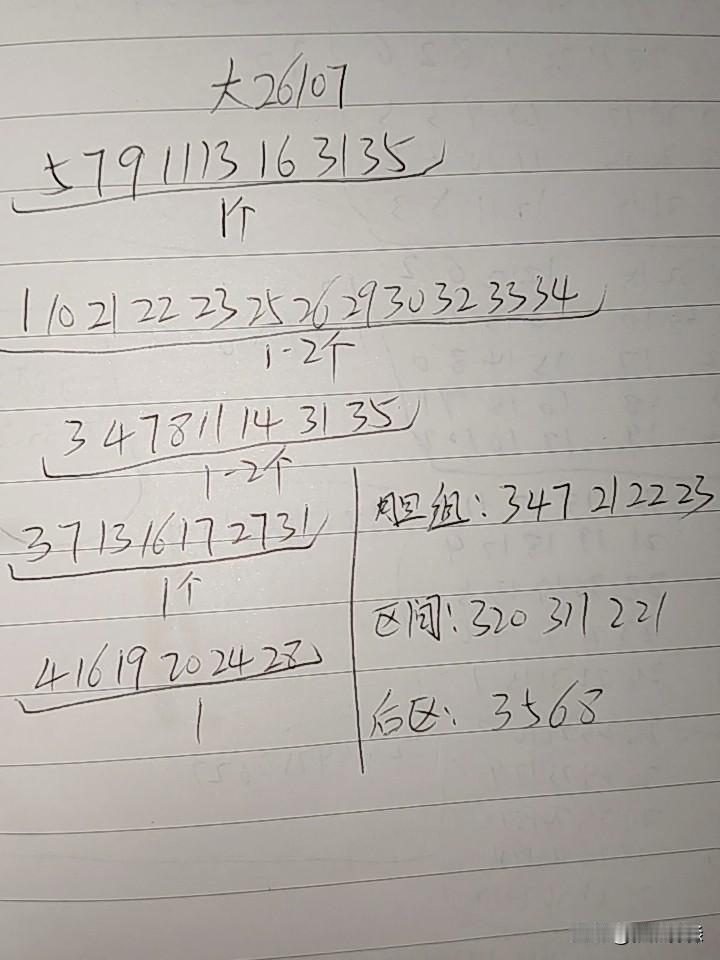 大26107
5 7 9 11 13 16 31 35
1个
1 10 21 22 23 25 26 29 30 32 33 34
1-2个
3 4 7 8 11 14 31 35
1-2个
3 7 13 16 17 27 31
1个
4 16 19 20 24 28
1
胆组: 3 4 7 21 22 23
区间: 320 311 221
后区: 3 5 6 8